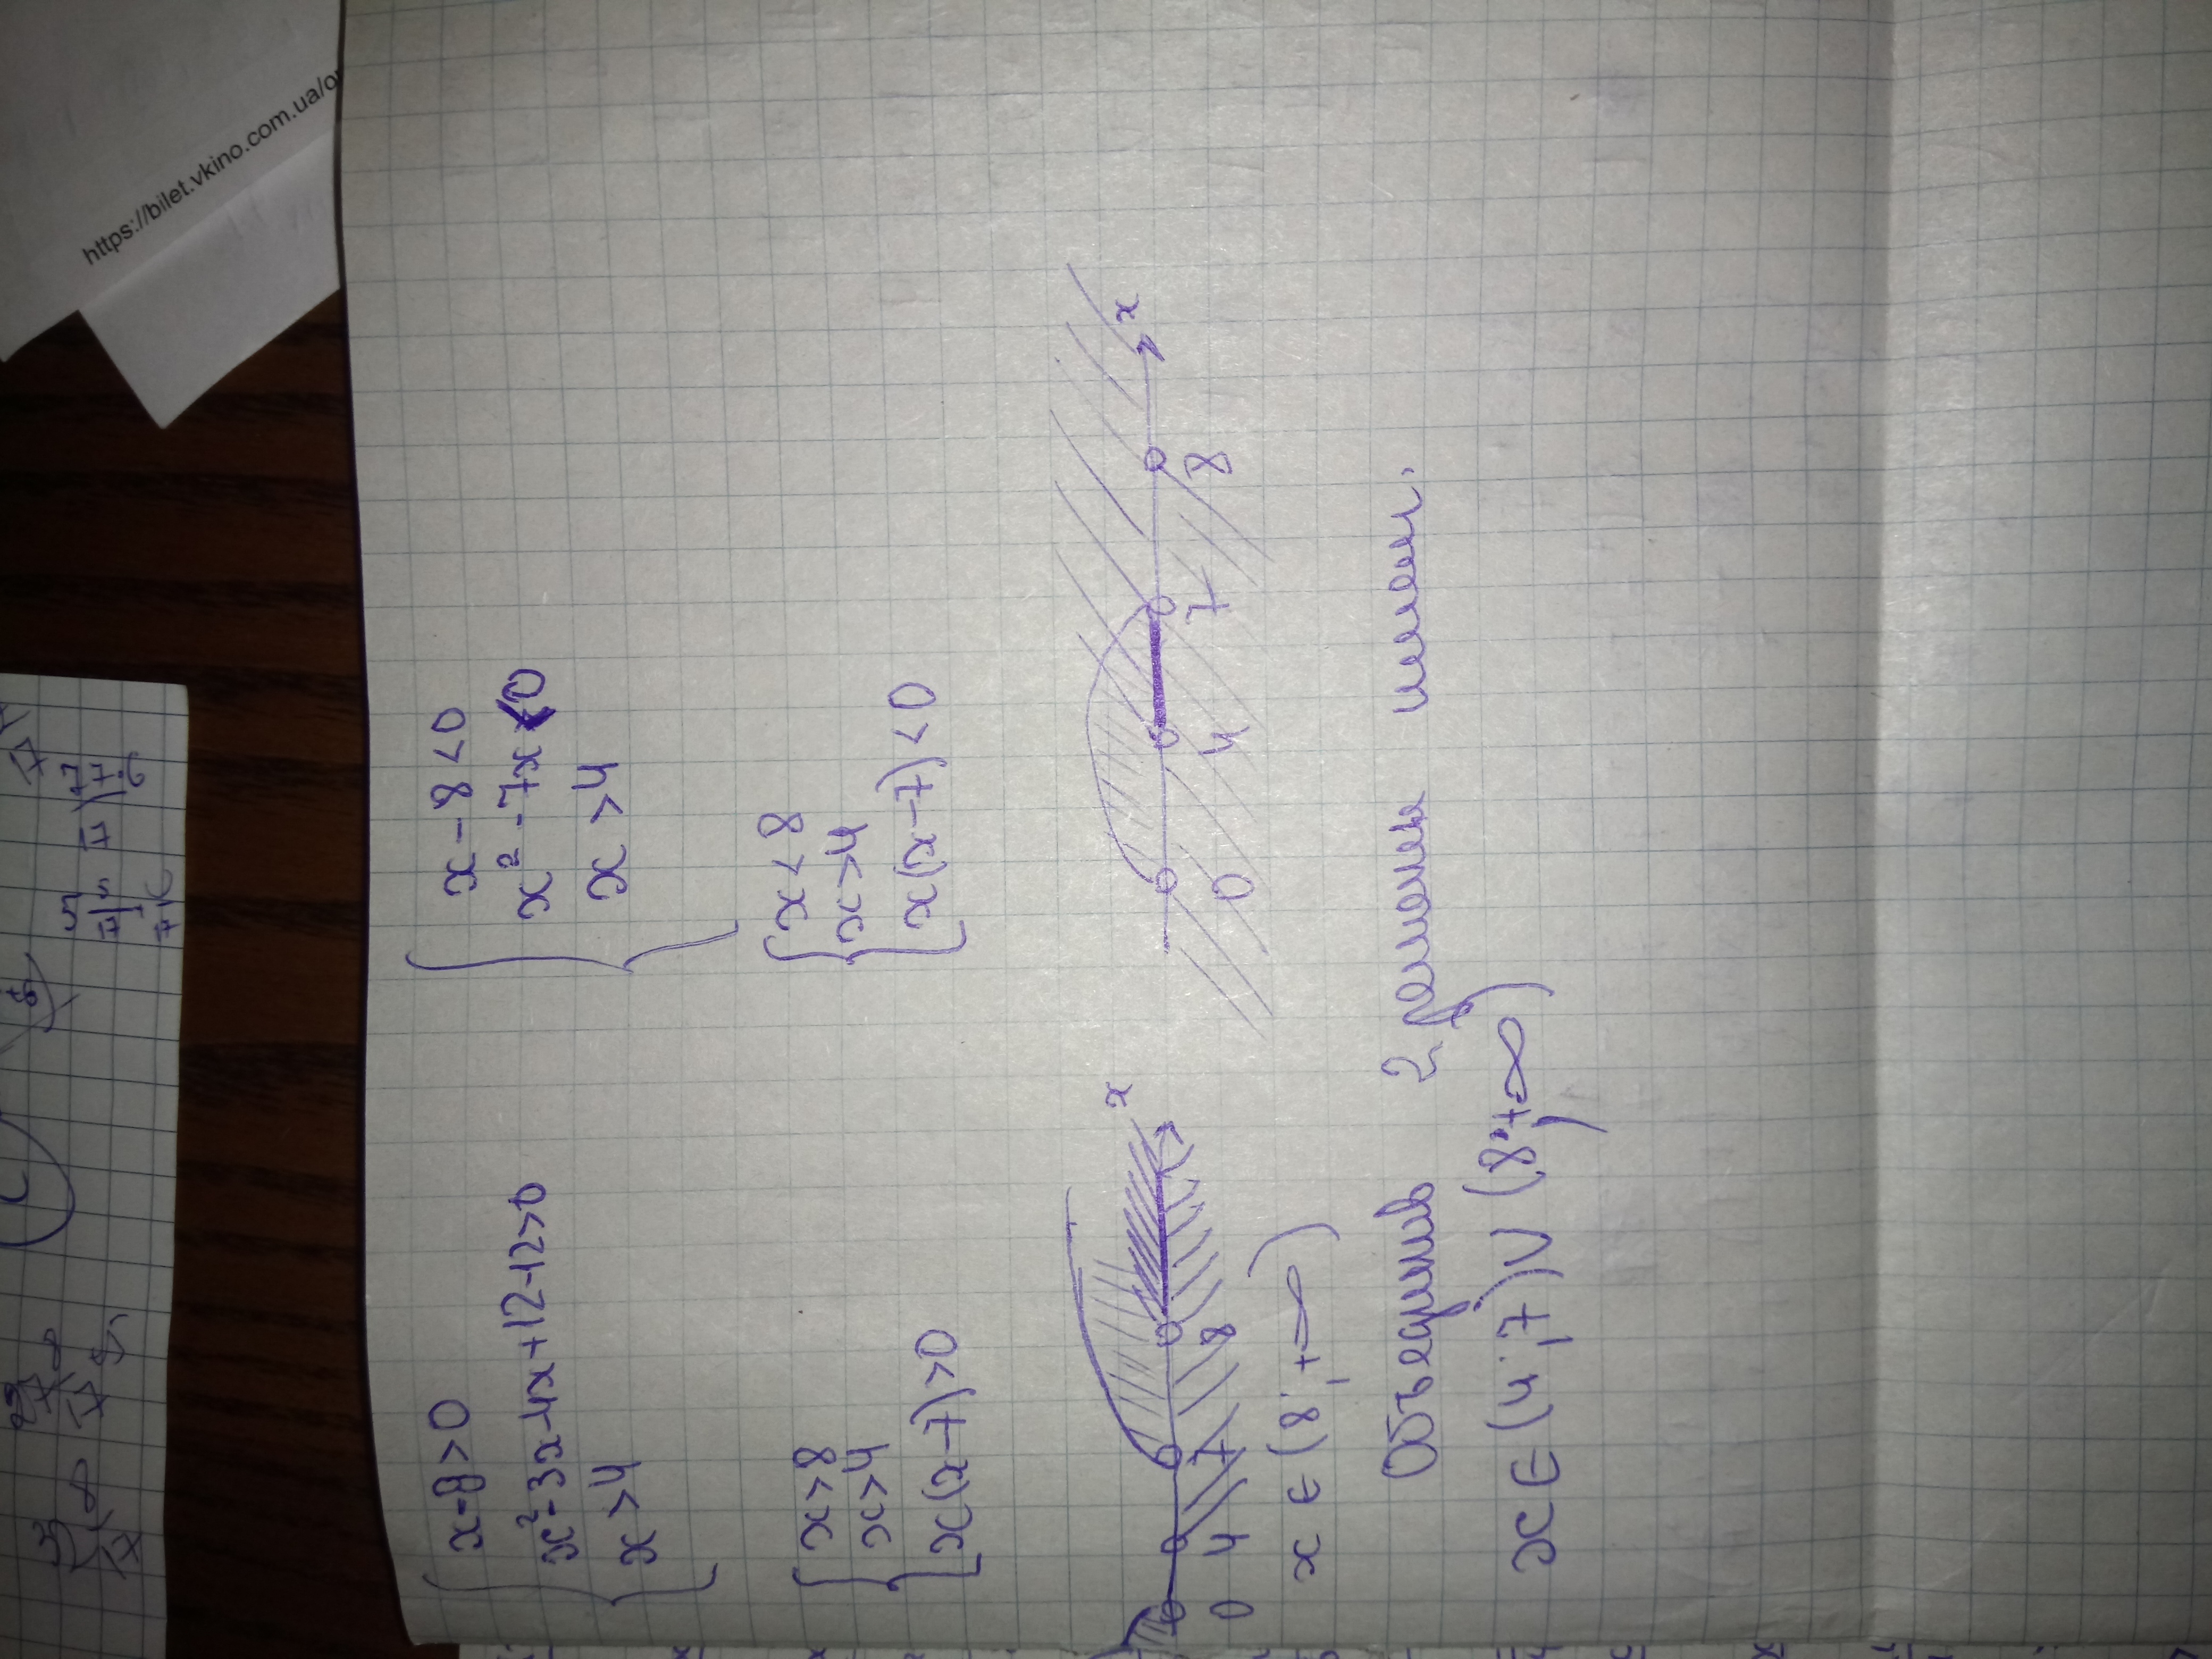 https://bilet.vkino.com.ua/o
x-8>0
x²-3x-4x+12-12>0
x>4
x>8
x>4
x(x-7)>0
x
0 4 7 8
x ∈ (8;+∞)
x-8<0
x²-7x<0
x>4
x<8
x>4
x(x-7)<0
x
0 4 7 8
Объединив 2 решения имеем:
x∈(4;7)∪(8;+∞)